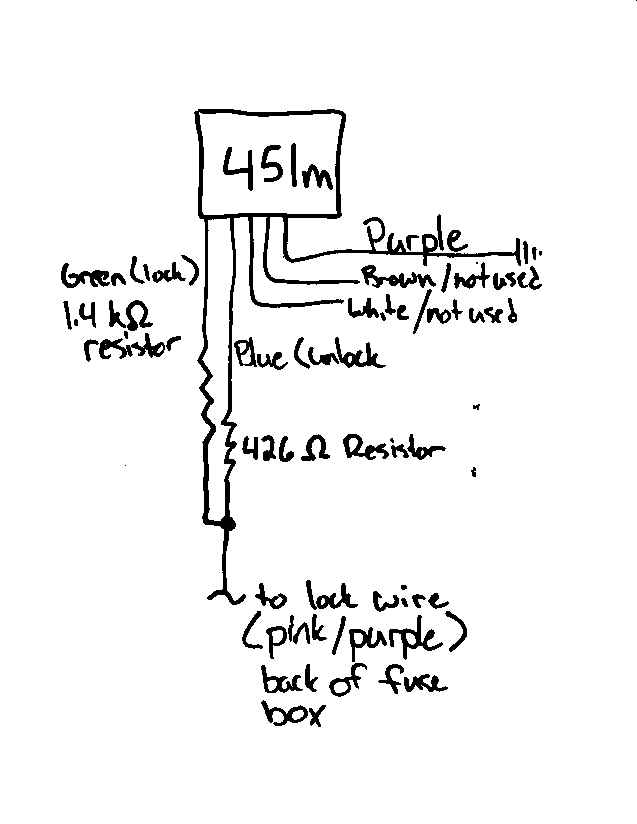 451m
Purple
Green (lock)
Brown/not used
1.4 kΩ
White/not used
resistor
Blue (unlock
426 Ω Resistor
to lock wire
(pink/purple)
back of fuse
box